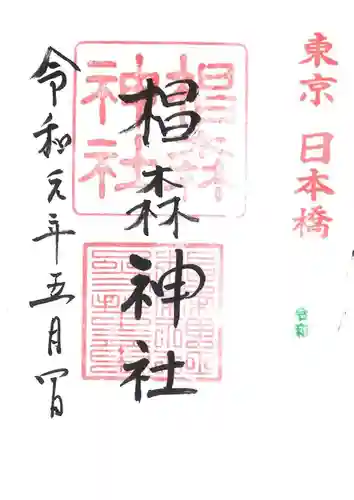 東京 日本橋
椙森神社
椙森
神社
令和元年五月四日